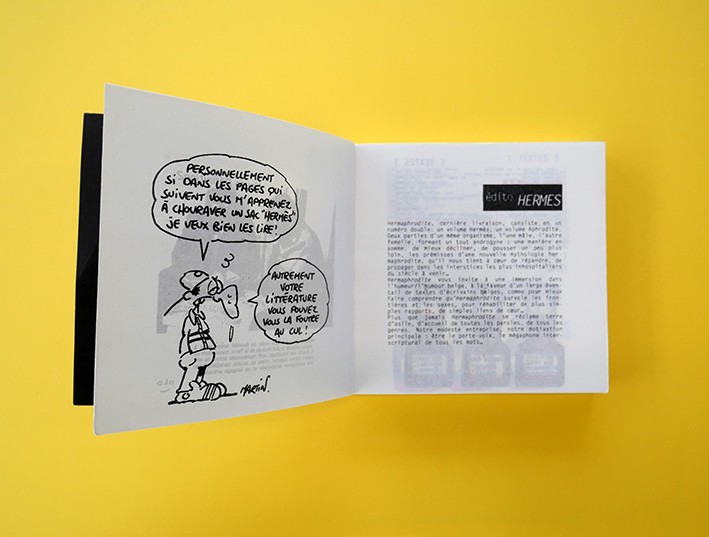 PERSONNELLEMENT
SI DANS LES PAGES QUI
SUIVENT VOUS M'APPRENEZ
À CHOURAVER UN SAC "HERMÈS"
JE VEUX BIEN LES LIRE!
AUTREMENT
VOTRE
LITTÉRATURE
VOUS POUVEZ
VOUS LA FOUTRE
AU CUL!
MARTIN.
édito HERMES
Hermaphrodite, dernière livraison, consiste en un
numéro double: un volume Hermès, un volume Aphrodite.
Deux parties d'un même organisme, l'une mâle, l'autre
femelle, forment un tout androgyne : une manière en
somme, de mieux décliner, de pousser un peu plus
loin, les prémisses d'une nouvelle mythologie her-
maphrodite, qu'il nous tient à cœur de répandre, de
propager dans les interstices les plus inhospitaliers
du siècle à venir…
Hermaphrodite vous invite à une immersion dans
l'humeur/l'humour belge, à la faveur d'un large éven-
tail de textes d'écrivains belges, comme pour mieux
faire comprendre qu'Hermaphrodite survole les fron-
tières et les sexes, pour réhabiliter de plus sim-
ples rapports, de simples liens de cœur…
Plus que jamais Hermaphrodite se réclame terre
d'asile, d'accueil de toutes les paroles, de tous les
genres. Notre modeste entreprise, notre motivation
principale : être le porte-voix, le mégaphone inter-
scriptural de tous les mots…